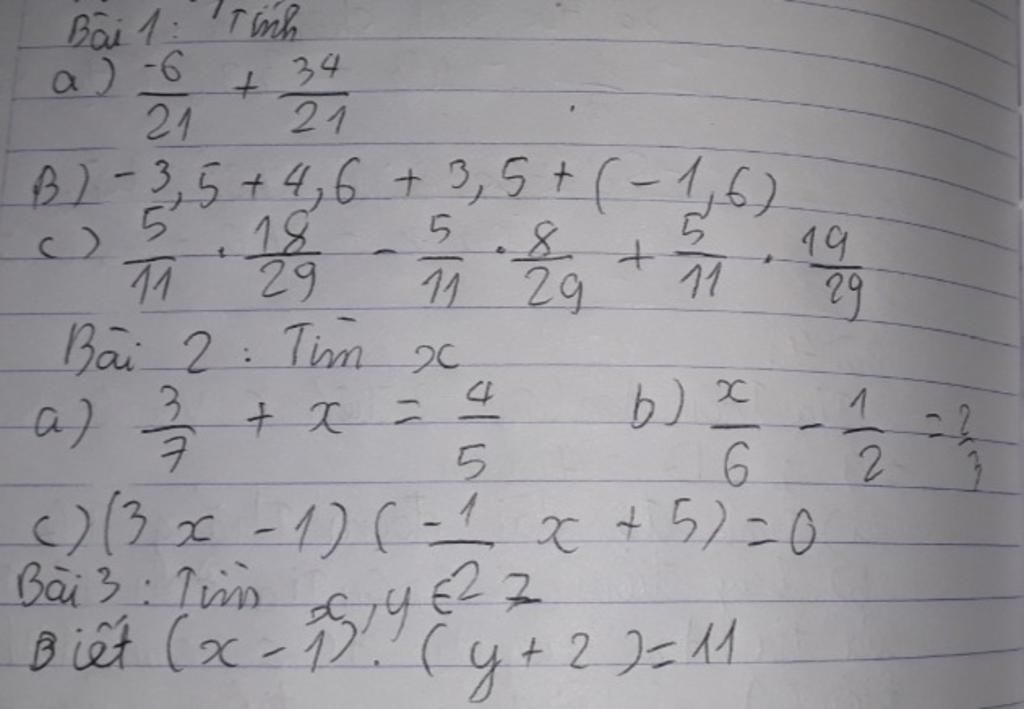 Bài 1: Tính
a) -6/21 + 34/21
B) -3,5 + 4,6 + 3,5 + (-1,6)
c) 5/11 . 18/29 - 5/11 . 8/29 + 5/11 . 19/29
Bài 2 : Tìm x
a) 3/7 + x = 4/5 b) x/6 - 1/2 = 2/3
c) (3x - 1) (-1/2 x + 5) = 0
Bài 3 : Tìm x, y ∈ Z
Biết (x - 1) . (y + 2) = 11